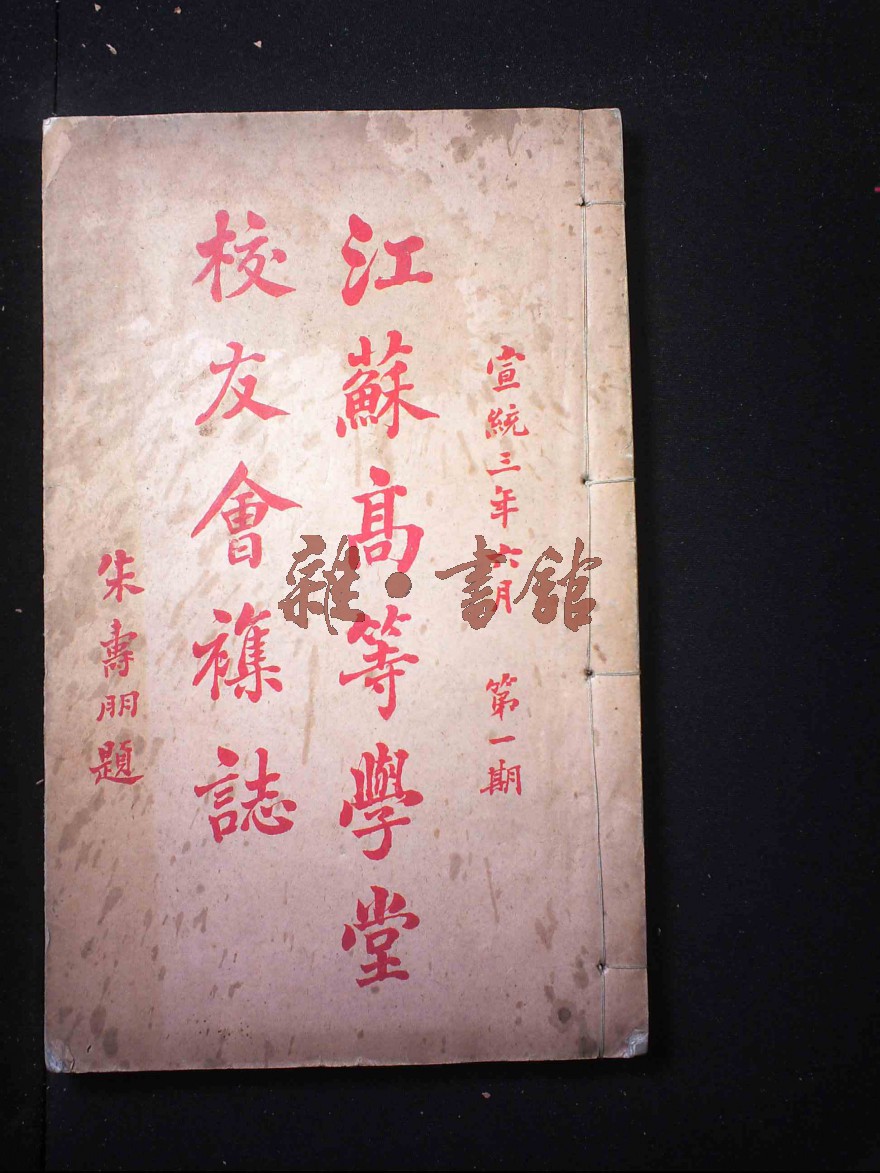 宣統三年六月 第一期
江蘇高等學堂
校友會襍誌
朱壽朋題
雜·書館